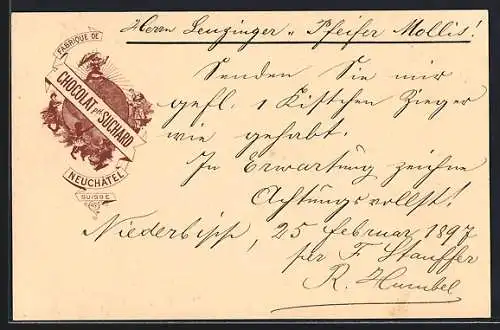 FABRIQUE DE
CHOCOLAT PH. SUCHARD
NEUCHÂTEL
SUISSE
Herrn Leuzinger u Pfeifer Mollis!
Senden Sie mir
gefl. 1 Kistchen Zieger
wie gehabt.
In Erwartung zeichne
Achtungsvollst!
Niederbipp, 25 Februar 1897
per F Stauffer
R. Humbel